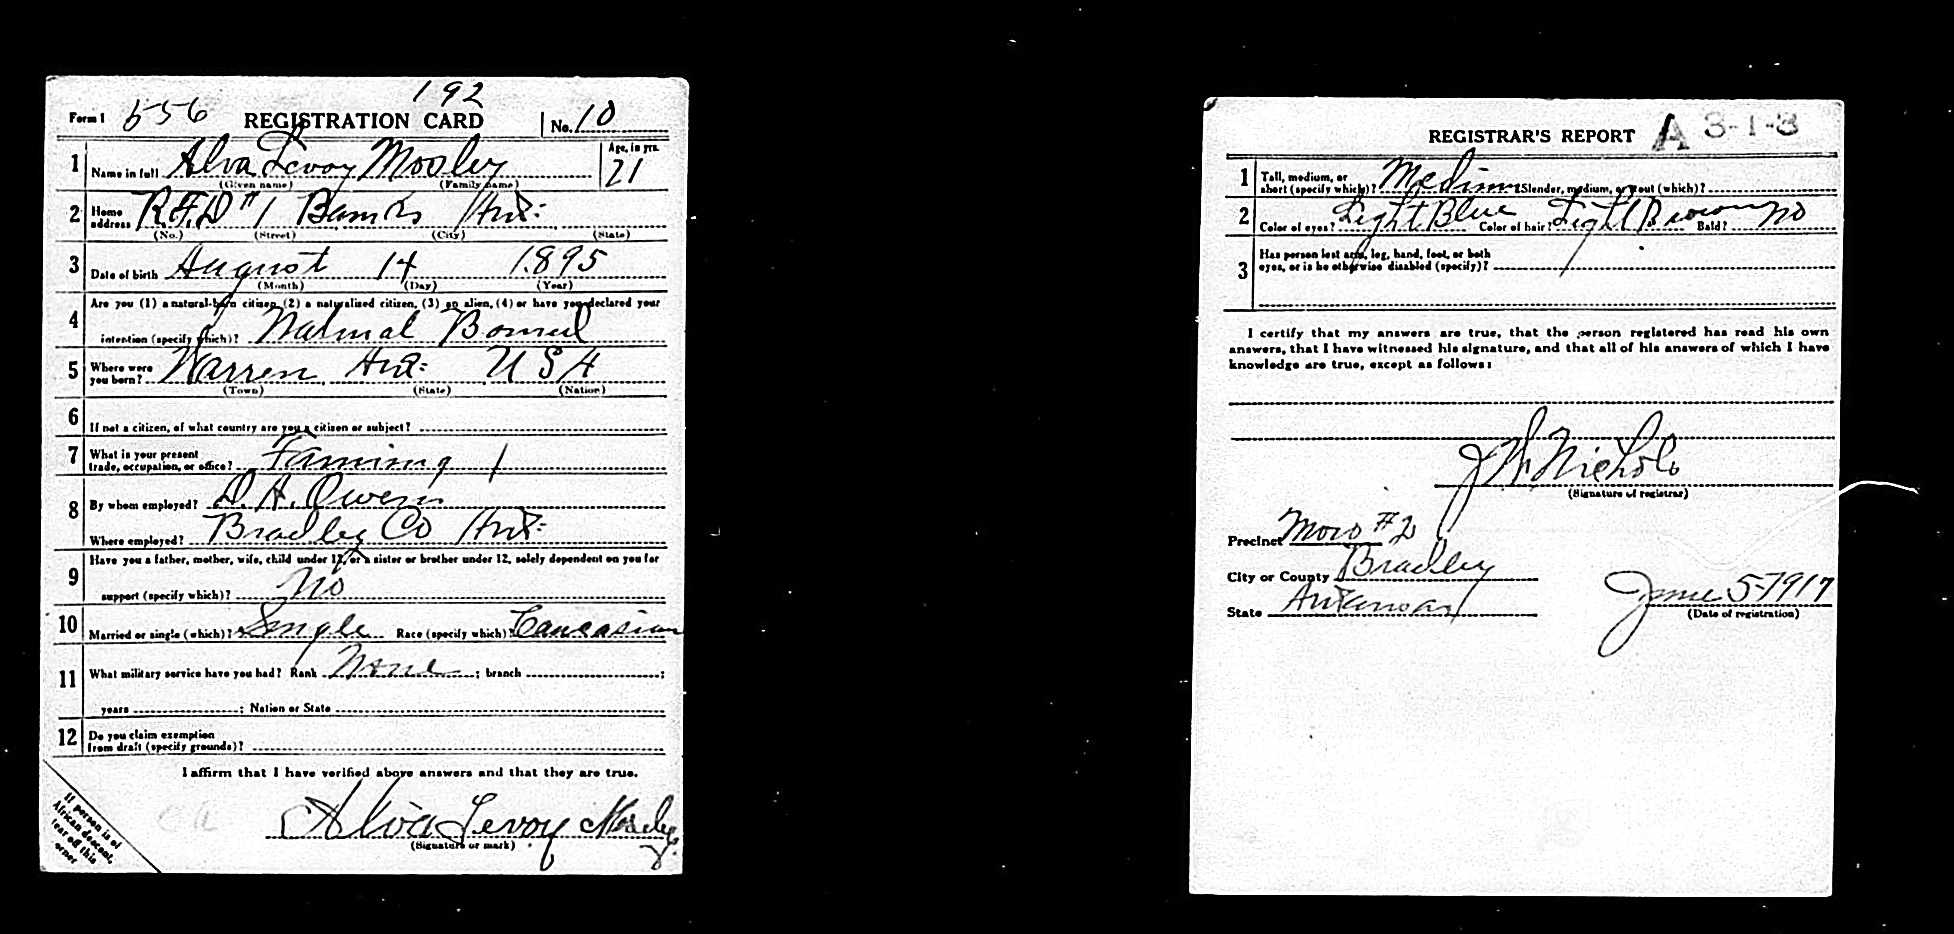 192
Form 1 556 REGISTRATION CARD No. 10
1 Name in full Alva Levoy Mosley Age, in yrs. 21
(Given name) (Family name)
2 Home address R.F.D #1 Banks Ark:
(No.) (Street) (City) (State)
3 Date of birth August 14 1895
(Month) (Day) (Year)
4 Are you (1) a natural-born citizen, (2) a naturalized citizen, (3) an alien, (4) or have you declared your
intention (specify which)? Natural Born
5 Where were you born? Warren Ark: U S A
(Town) (State) (Nation)
6 If not a citizen, of what country are you a citizen or subject?
7 What is your present trade, occupation, or office? Farming 1
8 By whom employed? D. A. Owens
Where employed? Bradley Co Ark:
9 Have you a father, mother, wife, child under 12, or a sister or brother under 12, solely dependent on you for
support (specify which)? No
10 Married or single (which)? Single Race (specify which)? Caucasian
11 What military service have you had? Rank None ; branch ;
years ; Nation or State
12 Do you claim exemption from draft (specify grounds)?
I affirm that I have verified above answers and that they are true.
Alva Levoy Mosley
(Signature or mark)
If person is of
African descent,
tear off this
corner
REGISTRAR'S REPORT A 3-1-3
1 Tall, medium, or short (specify which)? Medium Slender, medium, or stout (which)?
2 Color of eyes? Light Blue Color of hair? Light Brown Bald? No
3 Has person lost arm, leg, hand, foot, or both
eyes, or is he otherwise disabled (specify)?
I certify that my answers are true, that the person registered has read his own
answers, that I have witnessed his signature, and that all of his answers of which I have
knowledge are true, except as follows:
J W Nichols
(Signature of registrar)
Precinct Moro #2
City or County Bradley
State Arkansas
June 5-1917
(Date of registration)